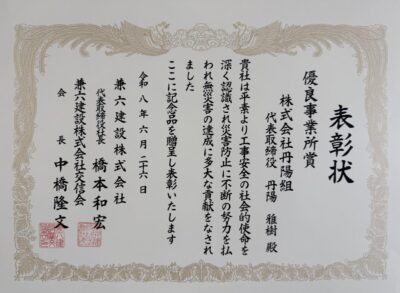 表彰状
優良事業所賞
株式会社丹陽組
代表取締役 丹陽 雅樹 殿
貴社は平素より工事安全の社会的使命を
深く認識され災害防止に不断の努力を払
われ無災害の達成に多大な貢献をなされ
ました
ここに記念品を贈呈し表彰いたします
令和八年六月二十六日
兼六建設株式会社
代表取締役社長 橋本和宏
兼六建設株式会社交信会
会長 中橋隆文